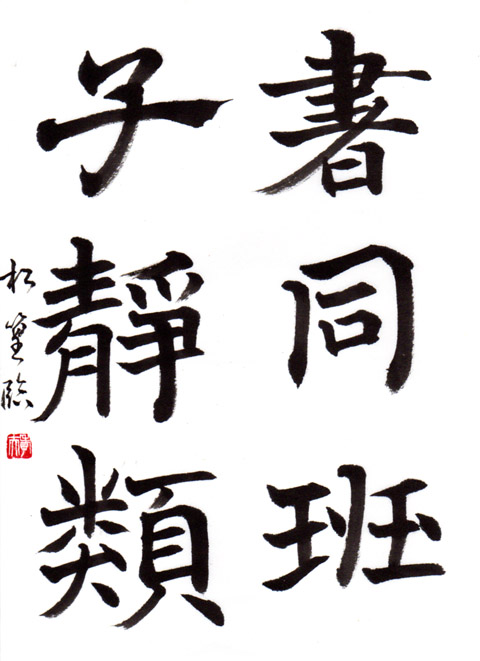 書同班
子靜類
松篁臨